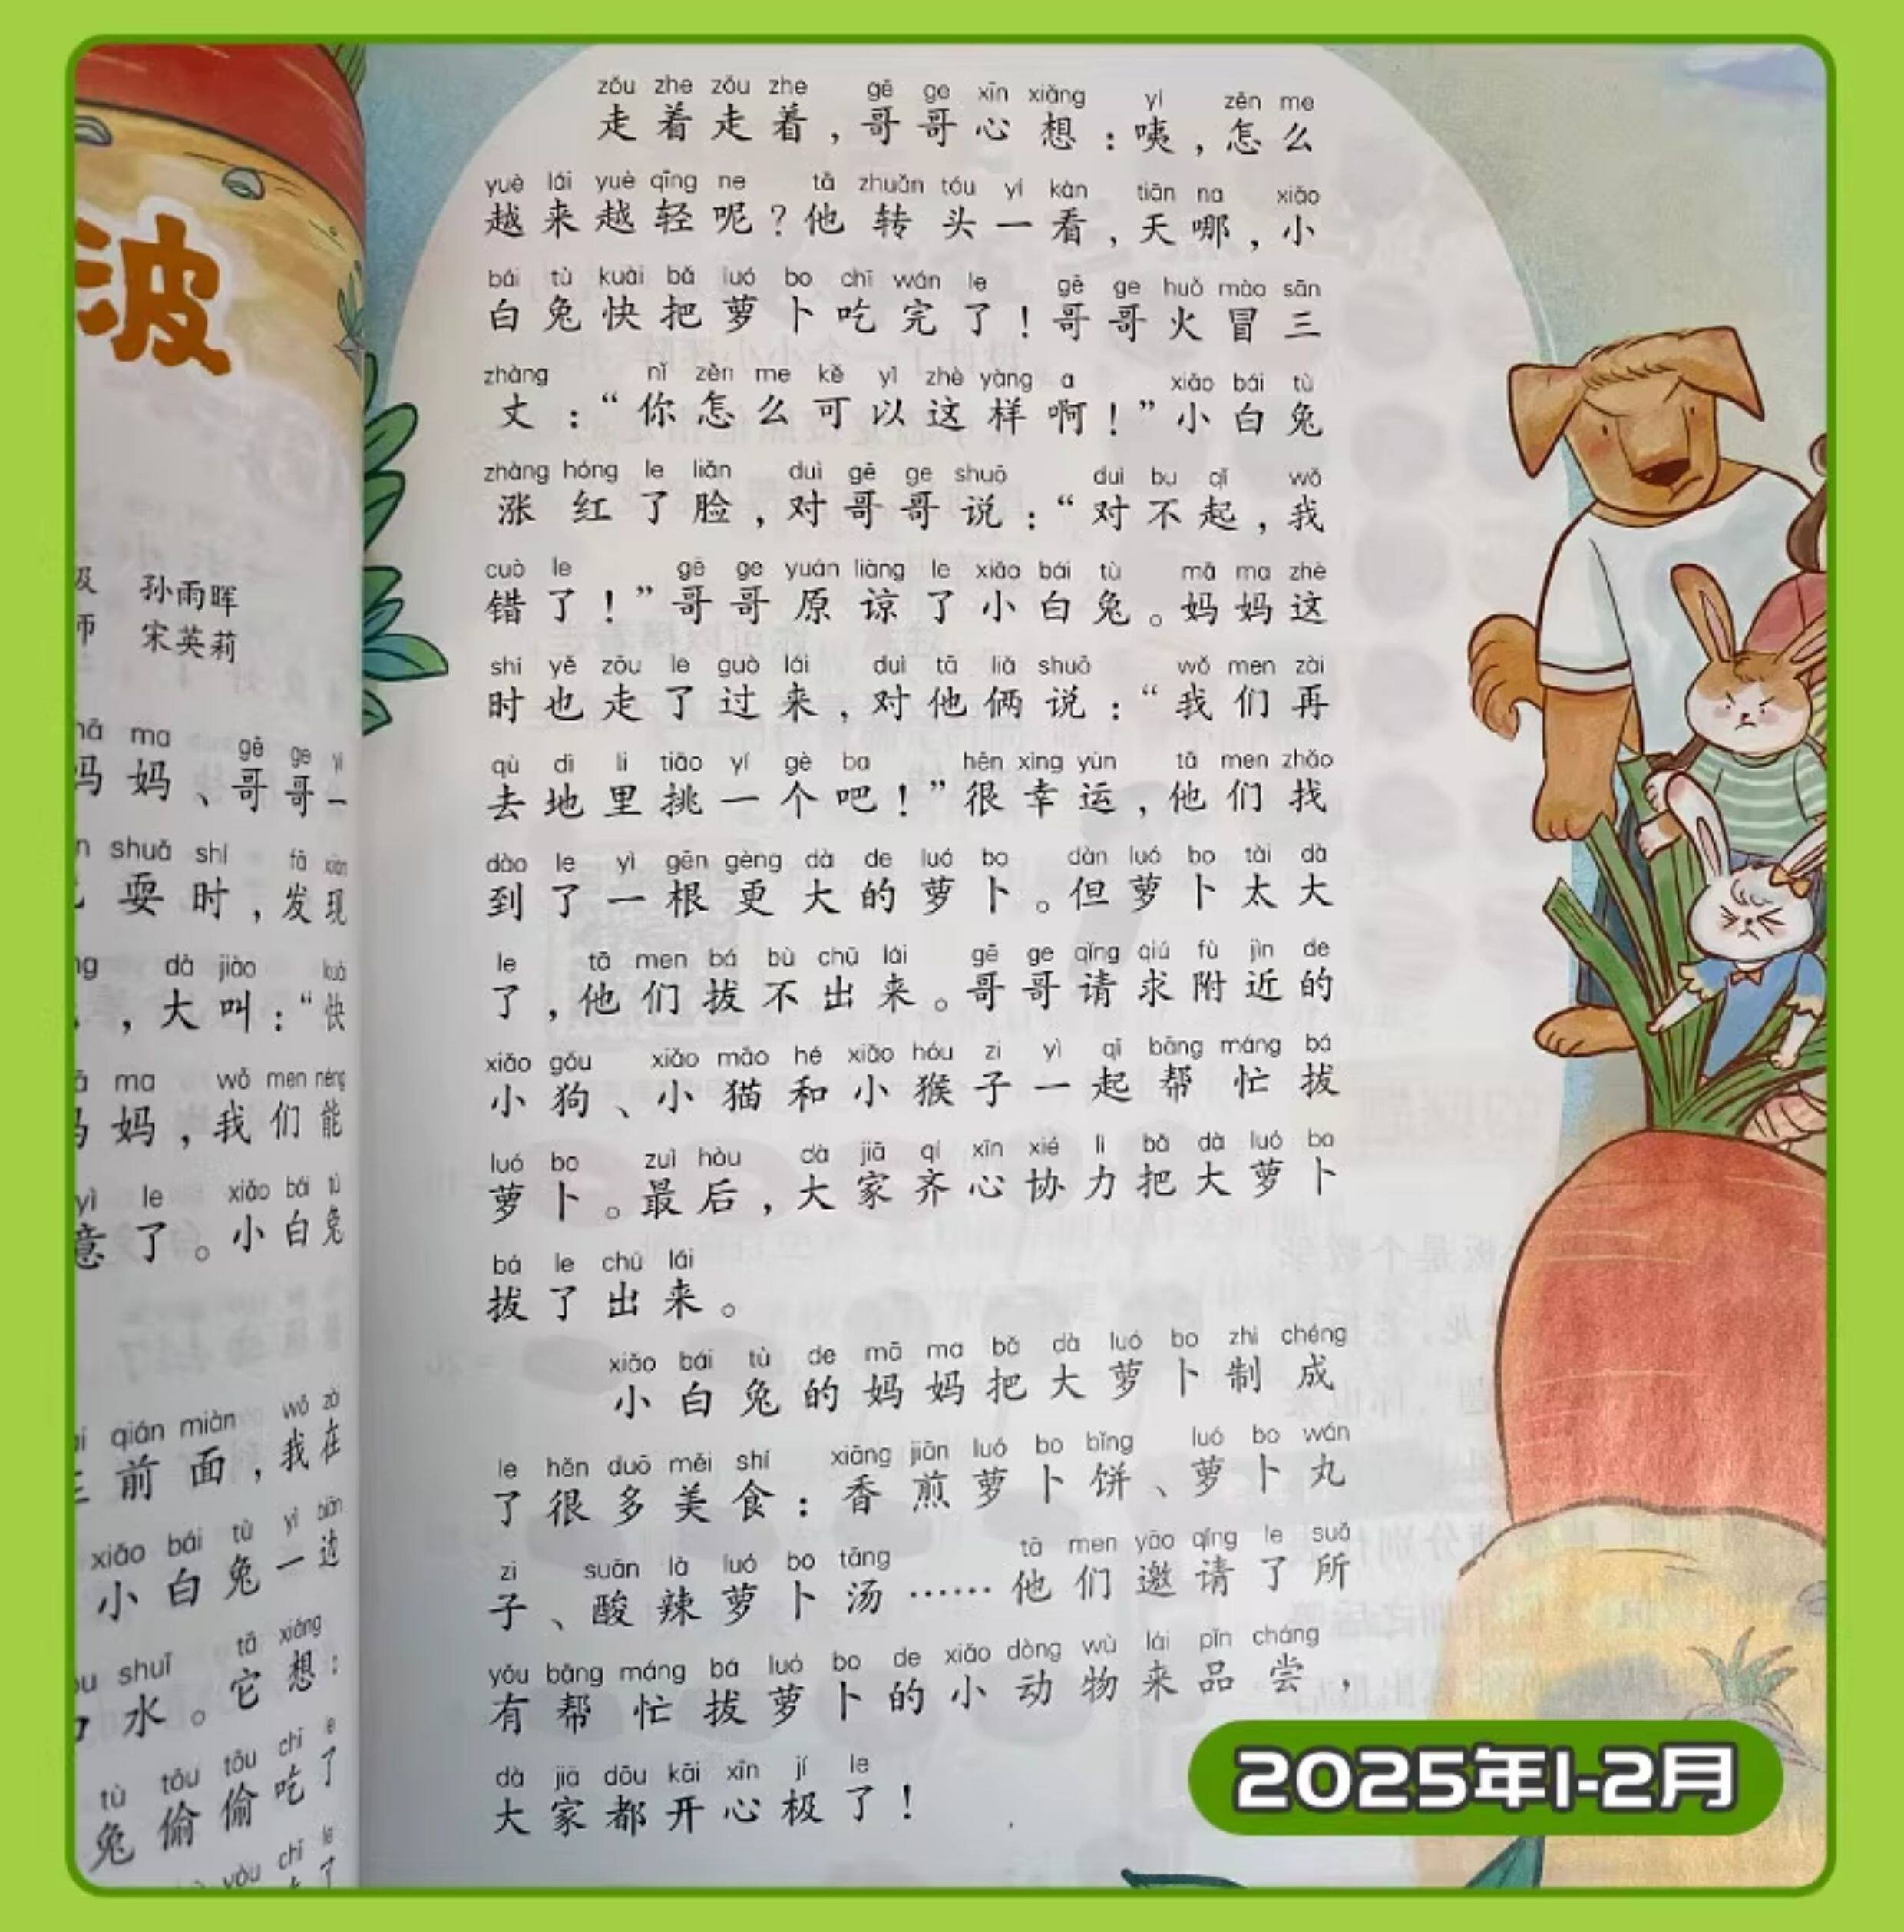 波
孙雨晖
师 宋英莉
mā ma gē ge yì
妈妈、哥哥一
shuǎ shí fā xiàn
耍时，发现
dà jiào kuài
，大叫：“快
ma wǒ men néng
妈妈，我们能
yì le xiǎo bái tù
意了。小白兔
qián miàn wǒ zài
前面，我在
xiǎo bái tù yì biān
小白兔一边
shuǐ tā xiǎng
水。它想：
tù tōu tōu chī le
兔偷偷吃了
yòu chī le
zǒu zhe zǒu zhe gē ge xīn xiǎng yí zěn me
走着走着，哥哥心想：咦，怎么
yuè lái yuè qīng ne tā zhuǎn tóu yí kàn tiān na xiǎo
越来越轻呢？他转头一看，天哪，小
bái tù kuài bǎ luó bo chī wán le gē ge huǒ mào sān
白兔快把萝卜吃完了！哥哥火冒三
zhàng nǐ zěn me kě yǐ zhè yàng a xiǎo bái tù
丈：“你怎么可以这样啊！”小白兔
zhàng hóng le liǎn duì gē ge shuō duì bu qǐ wǒ
涨红了脸，对哥哥说：“对不起，我
cuò le gē ge yuán liàng le xiǎo bái tù mā ma zhè
错了！”哥哥原谅了小白兔。妈妈这
shí yě zǒu le guò lái duì tā liǎ shuō wǒ men zài
时也走了过来，对他俩说：“我们再
qù dì li tiāo yí gè ba hěn xìng yùn tā men zhǎo
去地里挑一个吧！”很幸运，他们找
dào le yì gēn gèng dà de luó bo dàn luó bo tài dà
到了一根更大的萝卜。但萝卜太大
le tā men bá bù chū lái gē ge qǐng qiú fù jìn de
了，他们拔不出来。哥哥请求附近的
xiǎo gǒu xiǎo māo hé xiǎo hóu zi yì qǐ bāng máng bá
小狗、小猫和小猴子一起帮忙拔
luó bo zuì hòu dà jiā qí xīn xié lì bǎ dà luó bo
萝卜。最后，大家齐心协力把大萝卜
bá le chū lái
拔了出来。
xiǎo bái tù de mā ma bǎ dà luó bo zhì chéng
小白兔的妈妈把大萝卜制成
le hěn duō měi shí xiāng jiān luó bo bǐng luó bo wán
了很多美食：香煎萝卜饼、萝卜丸
zi suān là luó bo tāng tā men yāo qǐng le suǒ
子、酸辣萝卜汤……他们邀请了所
yǒu bāng máng bá luó bo de xiǎo dòng wù lái pǐn cháng
有帮忙拔萝卜的小动物来品尝，
dà jiā dōu kāi xīn jí le
大家都开心极了！
2025年1-2月